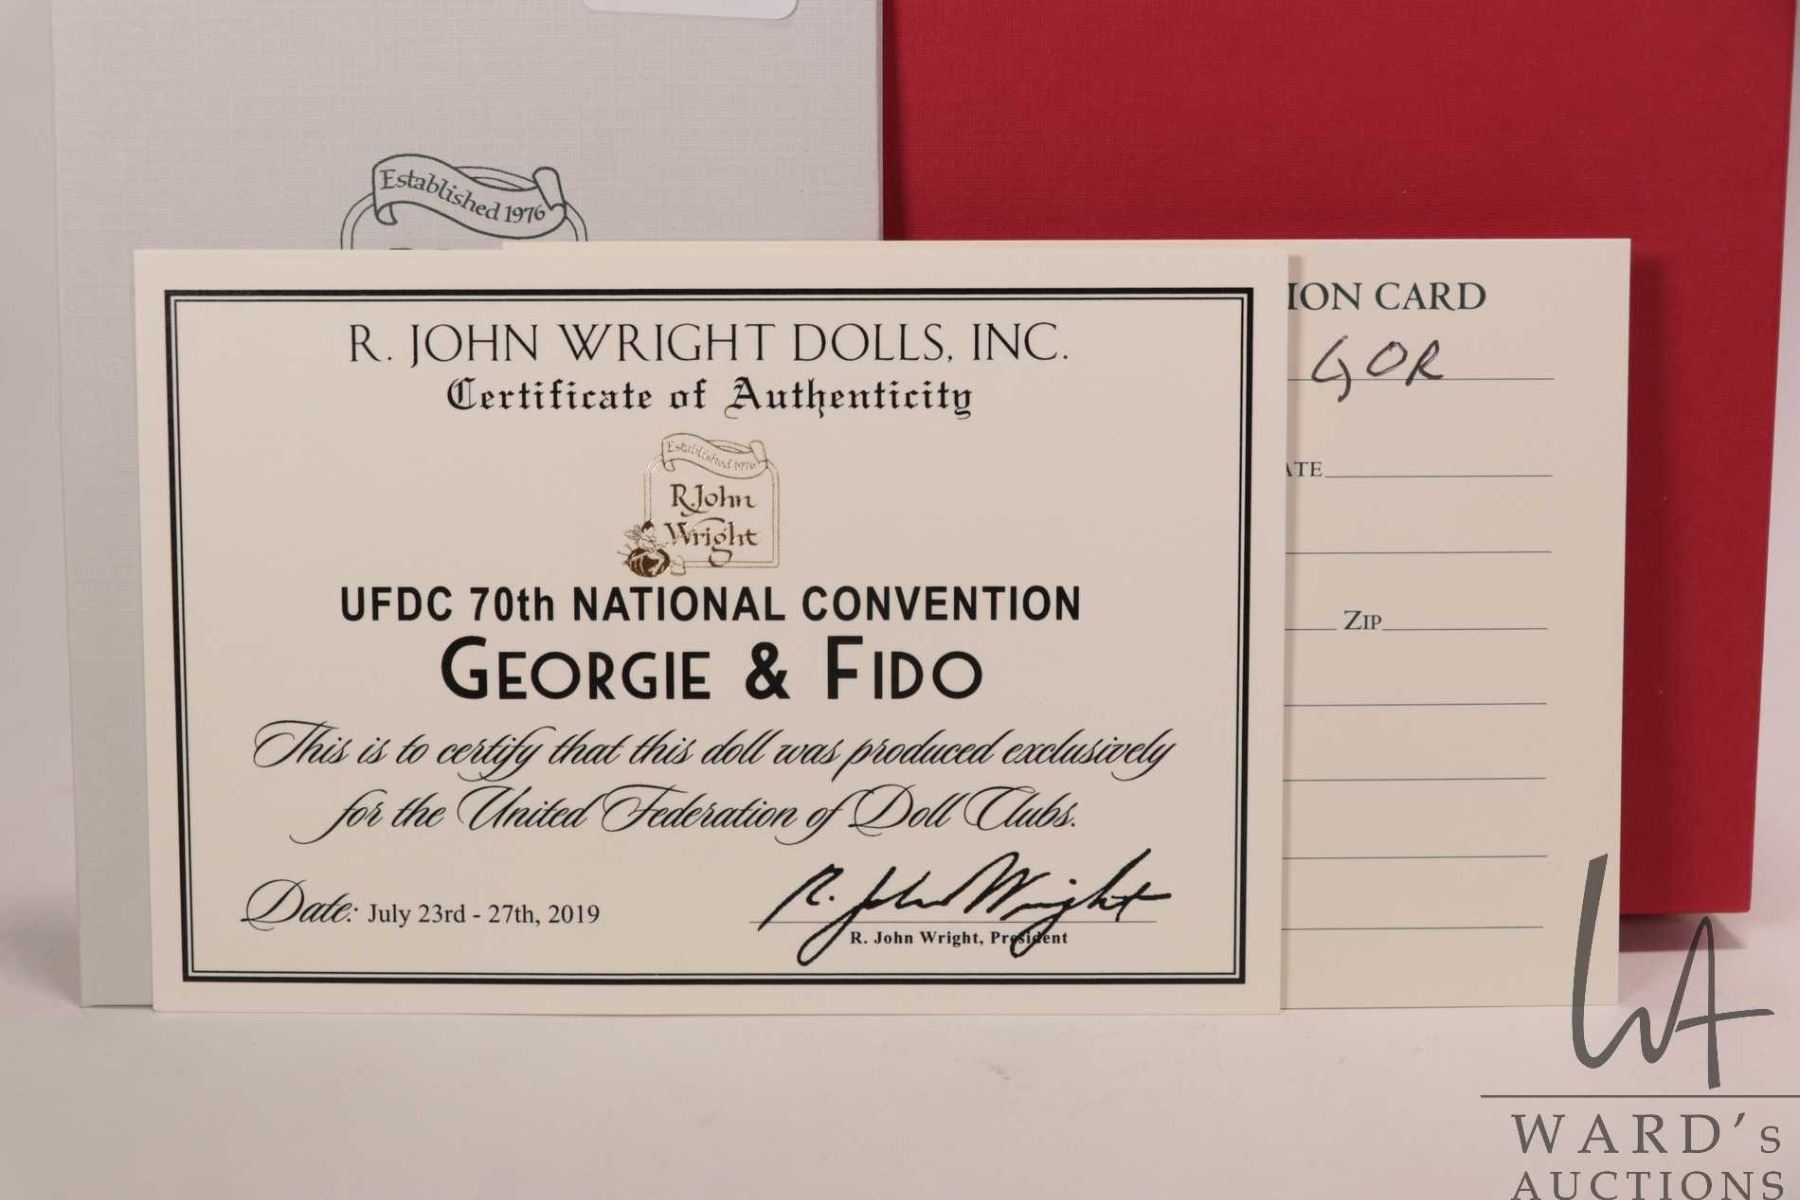 Established 1976
R. JOHN WRIGHT DOLLS, INC.
Certificate of Authenticity
Established 1976
R. John
Wright
UFDC 70th NATIONAL CONVENTION
GEORGIE & FIDO
This is to certify that this doll was produced exclusively
for the United Federation of Doll Clubs.
Date: July 23rd - 27th, 2019
R. John Wright
R. John Wright, President
ION CARD
GOR
ATE
ZIP
WA
WARD's
AUCTIONS